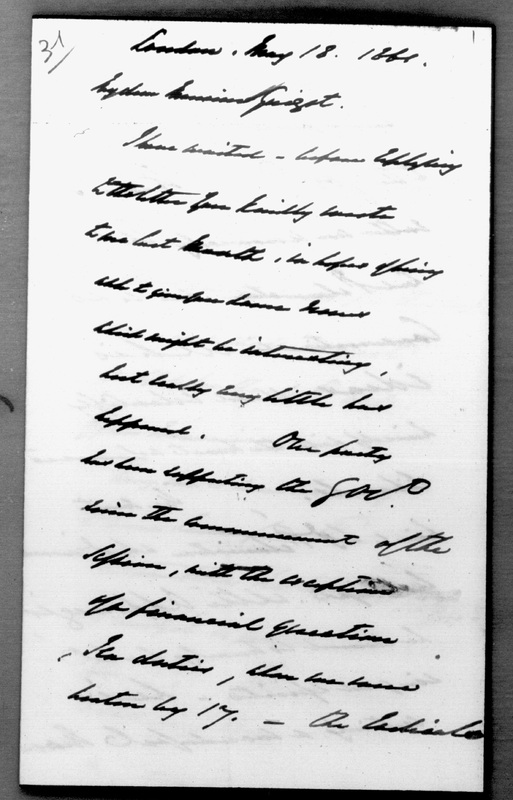 31
London. May 18. 1861.
My dear Monsieur Guizot.
I have waited – before replying
to the letter you kindly wrote
to me last Month, in hopes of being
able to give you some news
which might be interesting,
but really very little has
happened. Our party
has been supporting the Govt
since the commencement of the
Session, with the exception
of a financial question
Tea duties, when we were
beaten by 17. – The Radicals